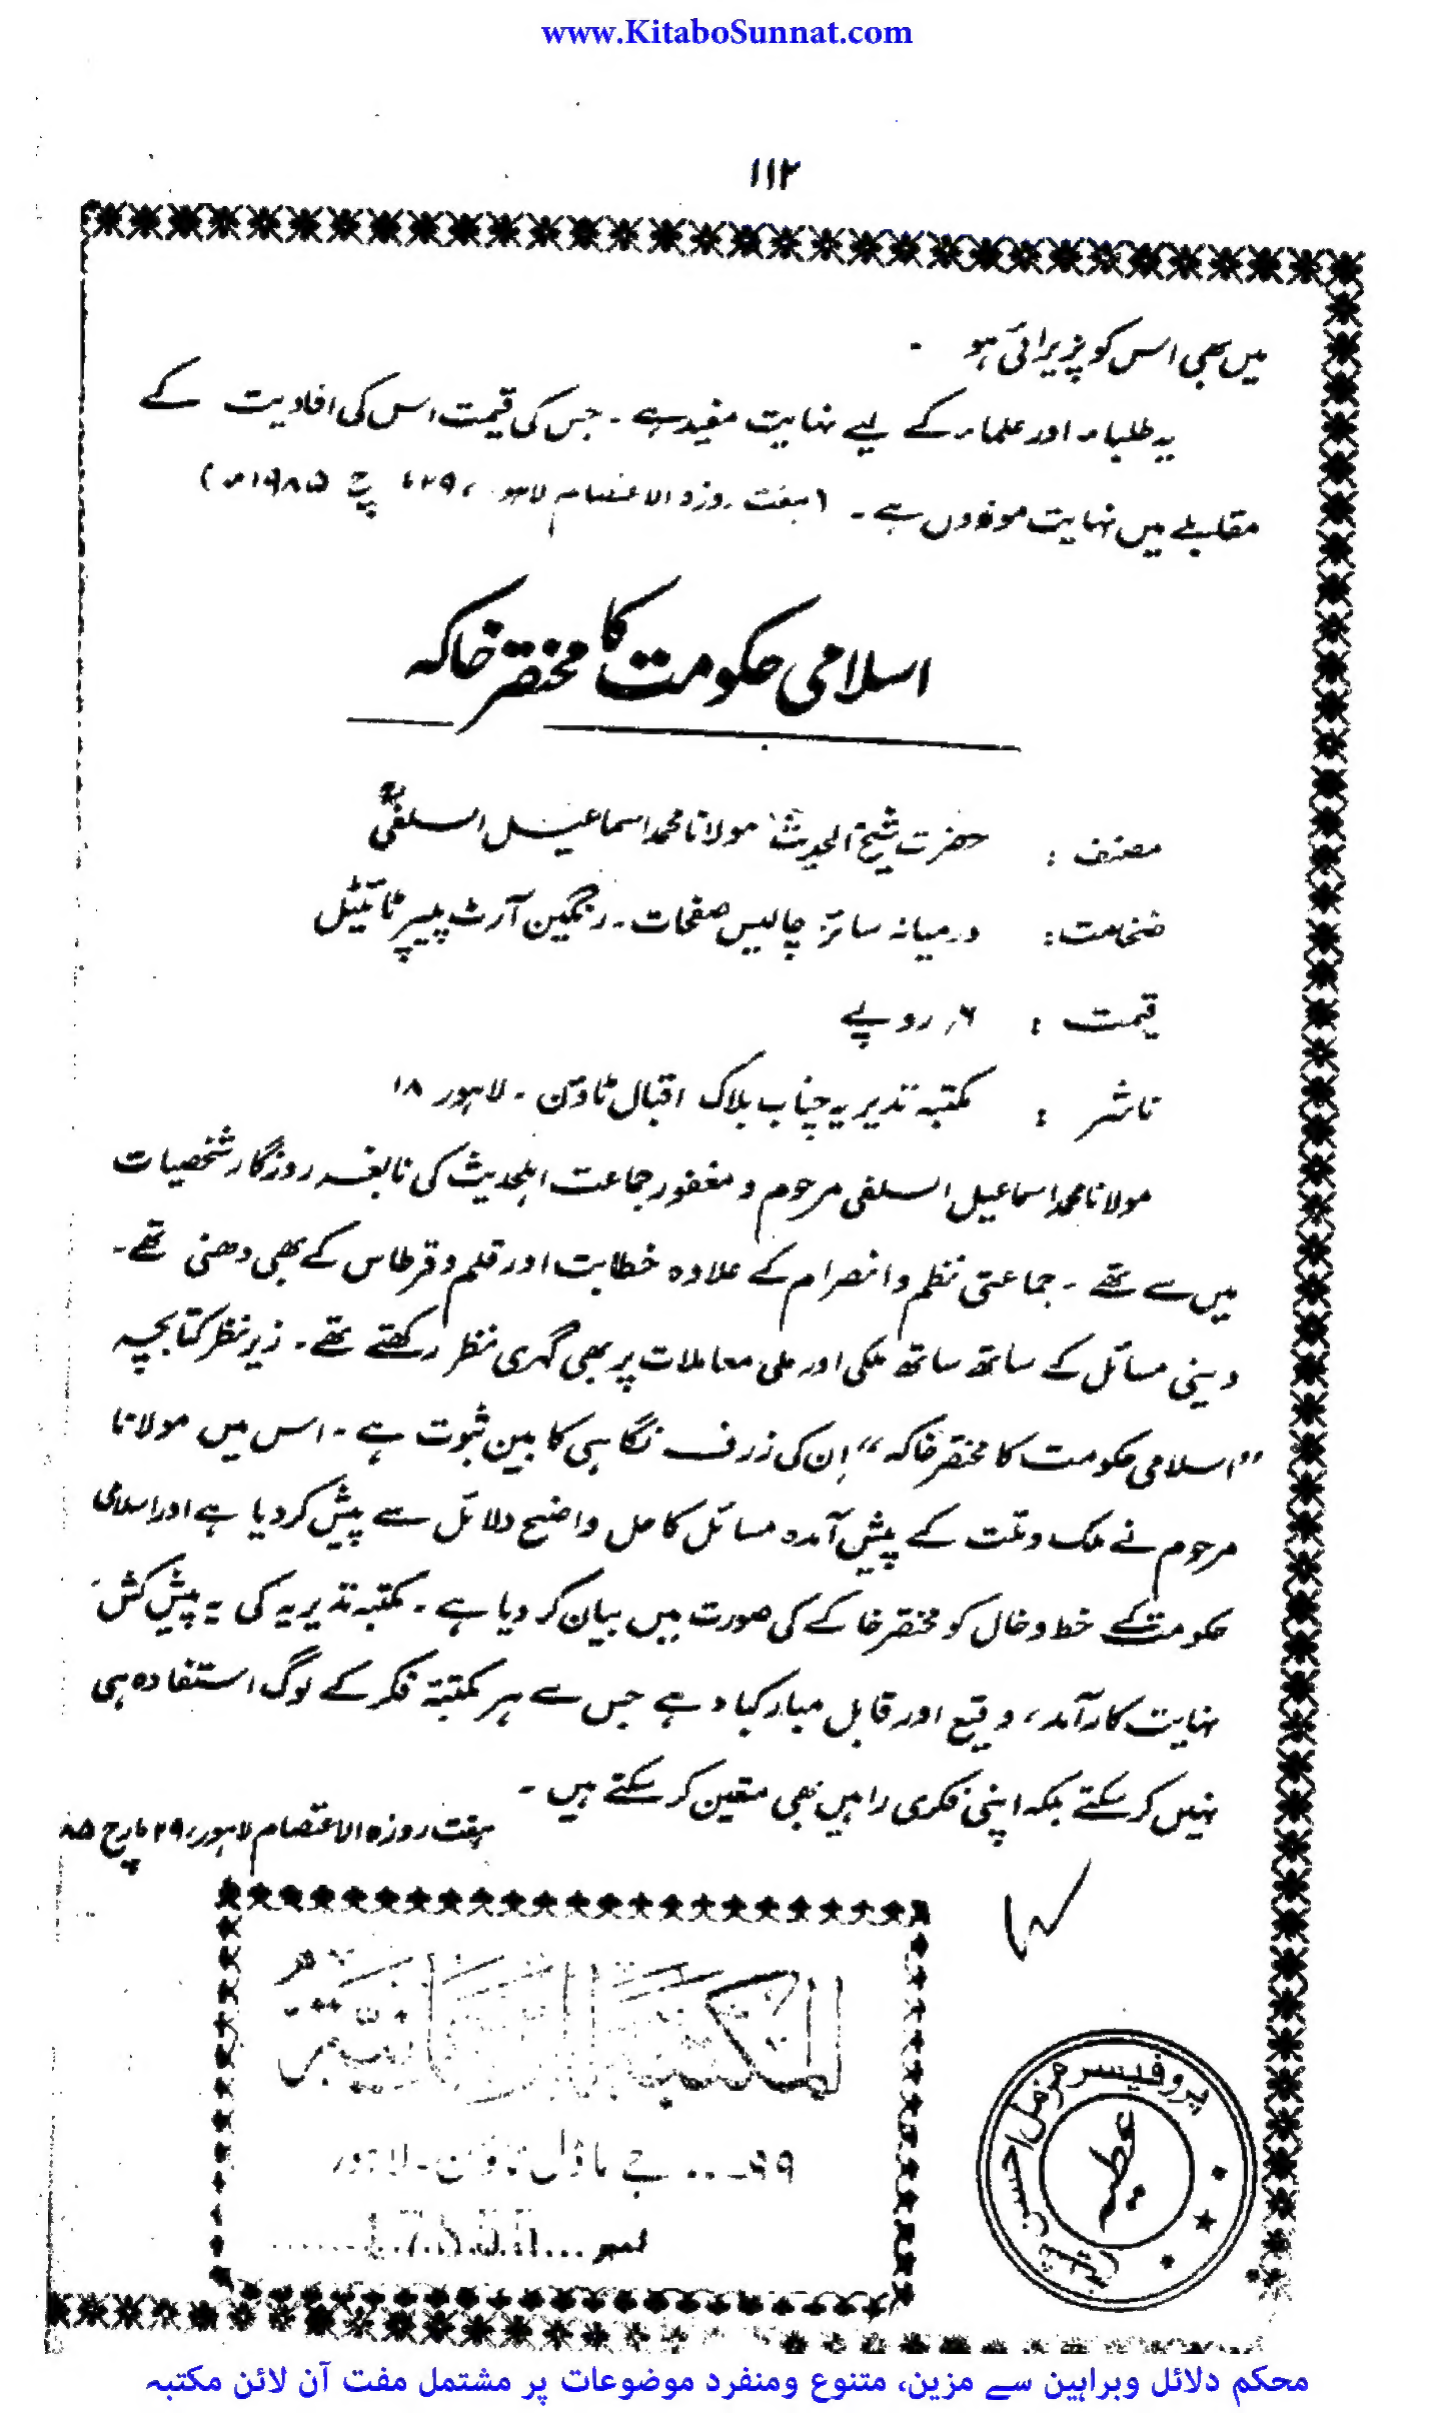 www.KitaboSunnat.com
۱۱۲
میں بھی اس کو پزیرائی ہو ۔
یہ طلباء اور علماء کے لیے نہایت مفید ہے ۔ جس کی قیمت اس کی افادیت کے
مقابلے میں نہایت موزوں ہے ۔ (ہفت روزہ الاعتصام لاہور ، ۲۹ مارچ ۱۹۸۵ء)
اسلامی حکومت کا مختصر خاکہ
مصنف : حضرت شیخ الحدیث مولانا محمد اسماعیل السلفیؒ
ضخامت : درمیانہ سائز چالیس صفحات ۔ رنگین آرٹ پیپر ٹائیٹل
قیمت : ۶/ روپے
ناشر : مکتبہ نذیریہ چناب بلاک اقبال ٹاؤن ۔ لاہور ۱۸
مولانا محمد اسماعیل السلفی مرحوم و مغفور جماعت اہلحدیث کی نابغہ روزگار شخصیات
میں سے تھے ۔ جماعتی نظم و انصرام کے علاوہ خطابت اور قلم و قرطاس کے بھی دھنی تھے ۔
دینی مسائل کے ساتھ ساتھ ملکی اور ملی معاملات پر بھی گہری نظر رکھتے تھے ۔ زیر نظر کتابچہ
”اسلامی حکومت کا مختصر خاکہ“ اِن کی ژرف نگاہی کا بین ثبوت ہے ۔ اس میں مولانا
مرحوم نے ملک و ملّت کے پیش آمدہ مسائل کا حل واضح دلائل سے پیش کر دیا ہے اور اسلامی
حکومت کے خط و خال کو مختصر خاکے کی صورت میں بیان کر دیا ہے ۔ مکتبہ نذیریہ کی یہ پیش کش
نہایت کارآمد ، وقیع اور قابل مبارکباد ہے جس سے ہر مکتبۂ فکر کے لوگ استفادہ ہی
نہیں کر سکتے بلکہ اپنی فکری راہیں بھی متعین کر سکتے ہیں ۔
ہفت روزہ الاعتصام لاہور ، ۲۹ مارچ ۸۵ء
المکتبۃ الرحمانیۃ
۹۹ ... جے ماڈل ٹاؤن ۔ لاہور
نمبر
پروفیسر مزمل احسن شیخ
عطیہ
محکم دلائل وبراہین سے مزین، متنوع ومنفرد موضوعات پر مشتمل مفت آن لائن مکتبہ